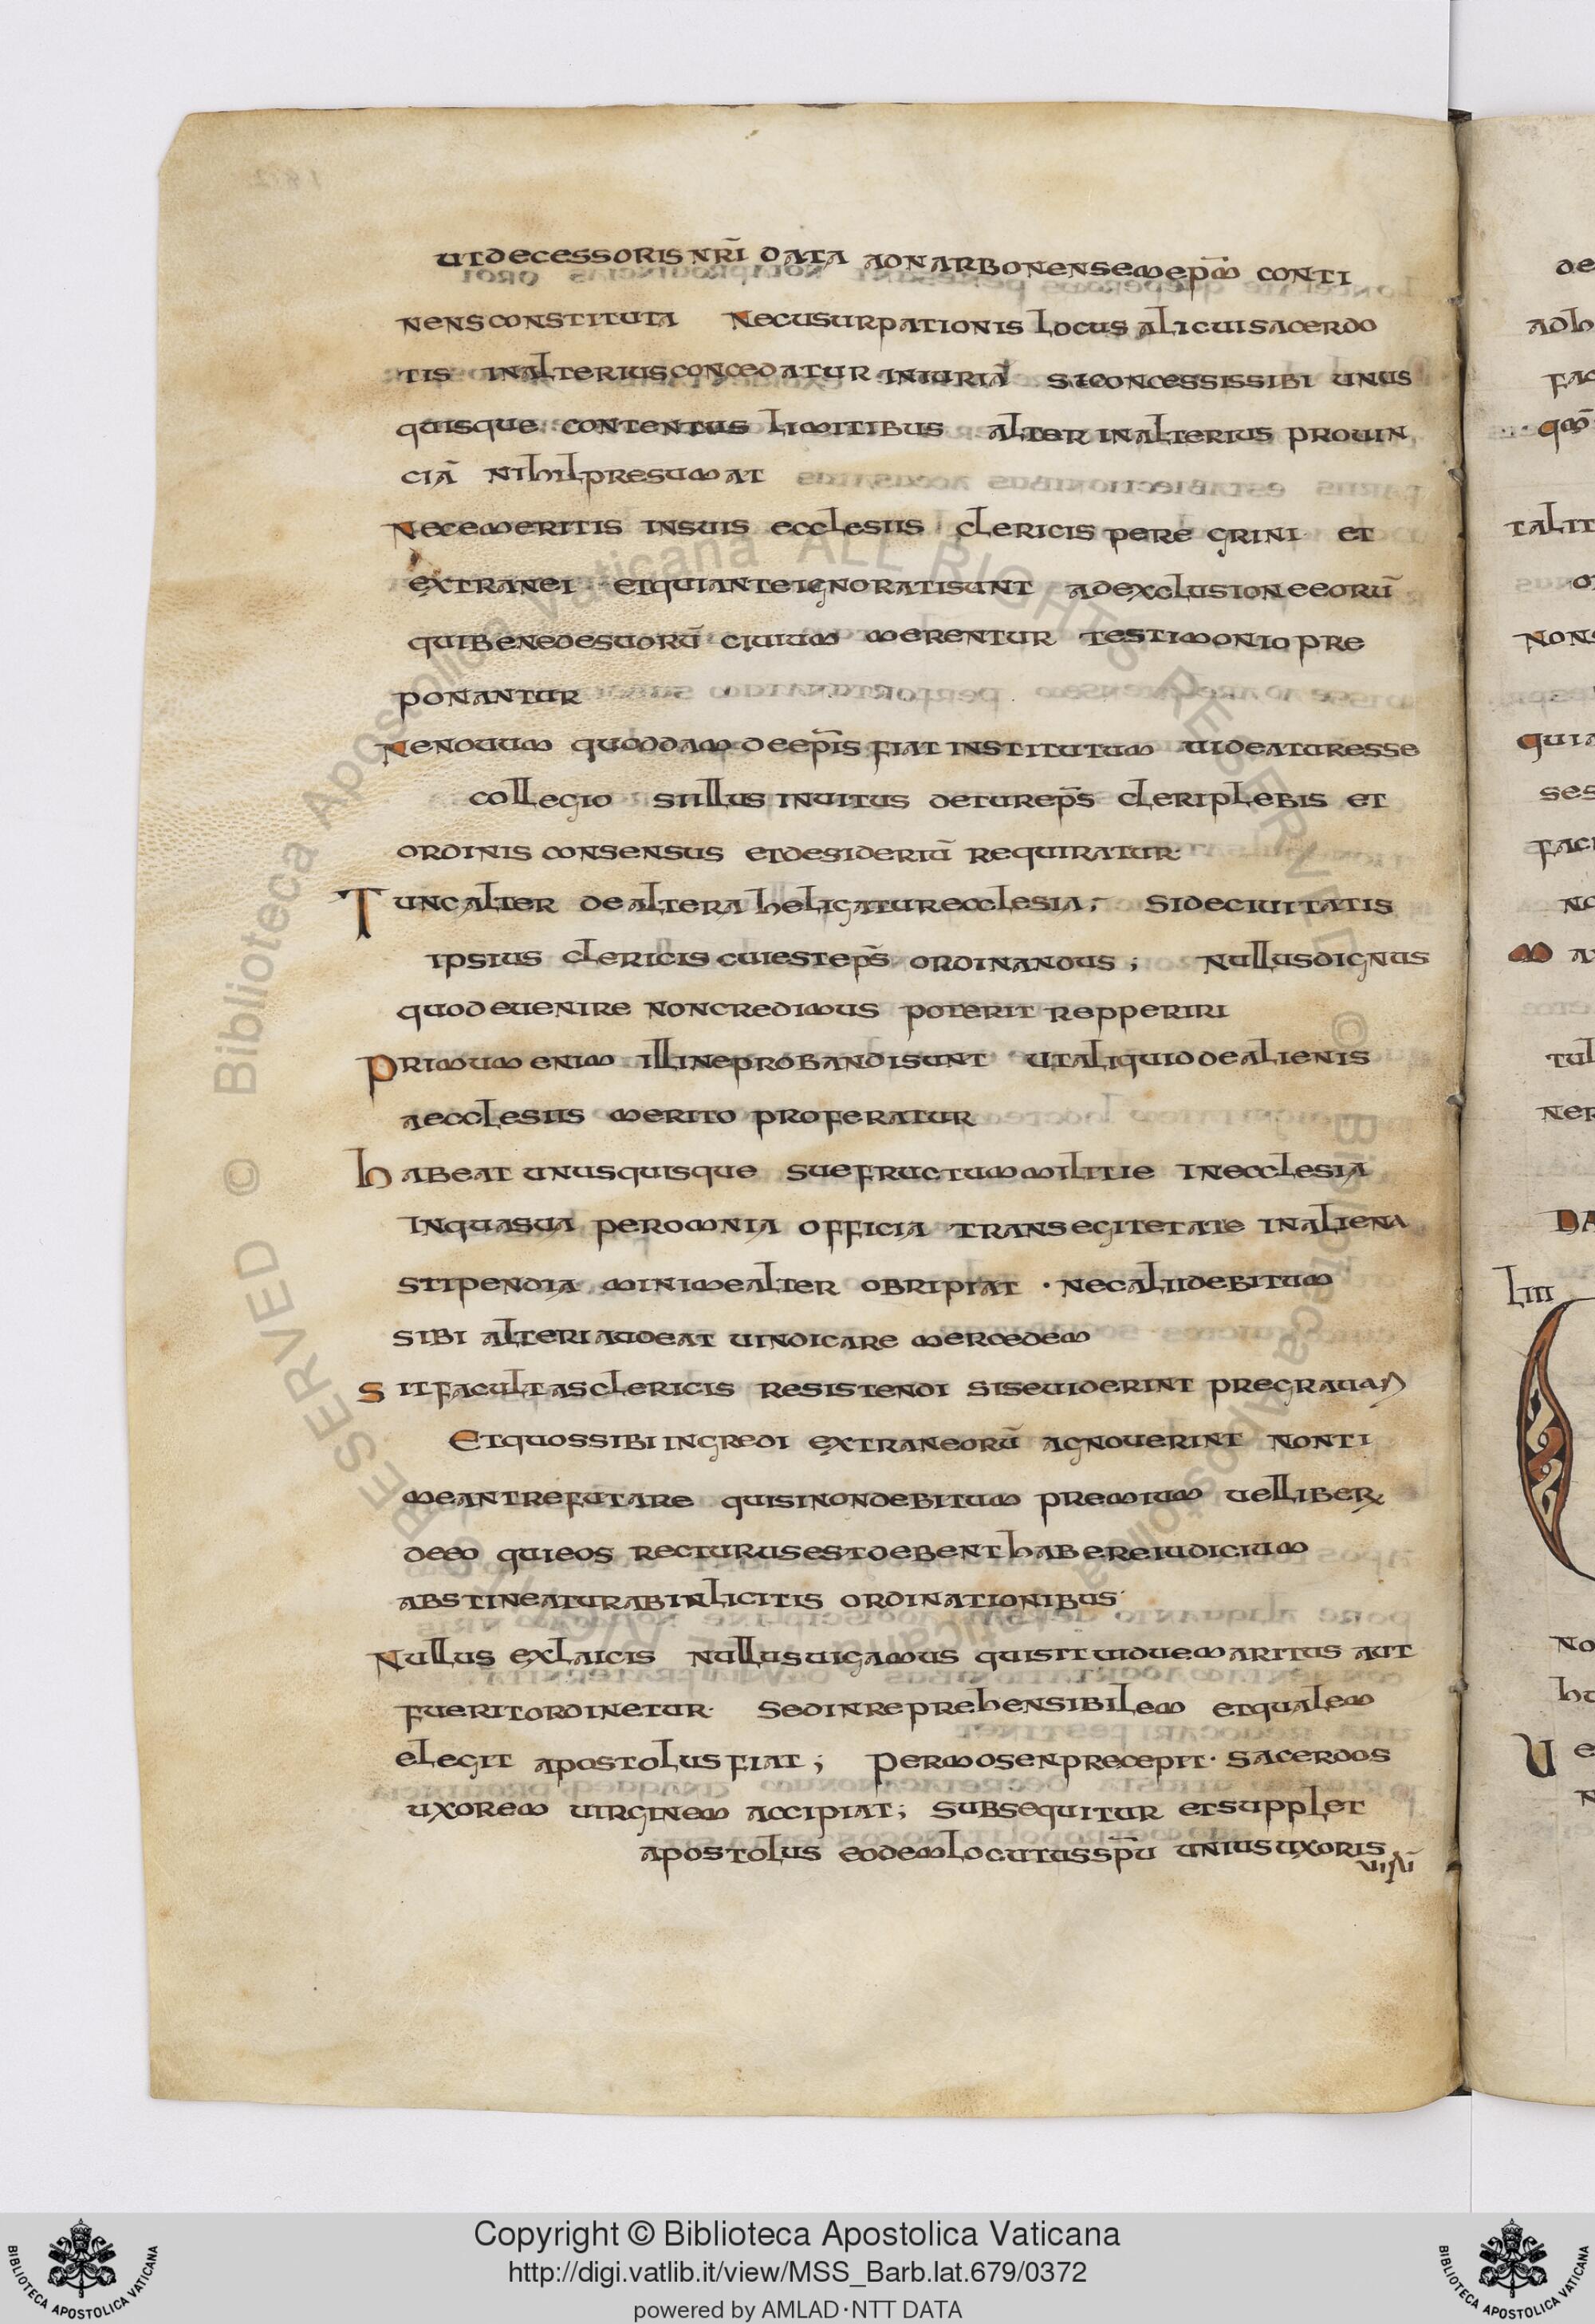 utdecessoris nr̄i data adnarbonensem ep̄m conti
nens constituta Nec usurpationis locus alicui sacerdo
tis inalterius concedatur iniuriā sit concessis sibi unus
quisque contentus limitibus alter inalterius prouin
ciā nihil presumat
Nec emeritis insuis ecclesiis clericis peregrini et
extranei et qui ante ignorati sunt ad exclusione eorū
qui bene de suorū ciuium merentur testimonio pre
ponantur
Ne nouum quoddam de ep̄is fiat institutum uideatur esse
collegio sn illus inuitus detur ep̄s cleri plebis et
ordinis consensus et desideriū requiratur
Tunc alter de altera heligatur ecclesia; Si de ciuitatis
ipsius clericis cui est ep̄s ordinandus; Nullus dignus
quod euenire non credimus poterit repperiri
Primum enim illi neprobandi sunt ut aliquid de alienis
aecclesiis merito proferatur
habeat unusquisque sue fructum militie in ecclesia
In qua sua per omnia officia transegit etate in aliena
stipendia minime alter obripiat · nec alii debitum
sibi alteri audeat uindicare mercedem
Sit facultas clericis resistendi si se uiderint pregrauari
Et quos sibi ingredi extraneorū agnouerint non ti
meant refutare qui si non debitum premium uel liber
de eo qui eos recturus est debent habere iudicium
abstineatur ab inlicitis ordinationibus
Nullus ex laicis nullus uigamus qui sit uidue maritus aut
fuerit ordinetur· Sed inreprehensibilem et qualem
elegit apostolus fiat; Per mosen precepit· sacerdos
uxorem uirginem accipiat; Subsequitur et supplet
apostolus eodem locutus sp̄u unius uxoris
uirū
de
adh
fac
qm̄
talit
Nons
quia
ses
faci
no
tul
ner
Da
liii
No
hu
U e
Copyright © Biblioteca Apostolica Vaticana
http://digi.vatlib.it/view/MSS_Barb.lat.679/0372
powered by AMLAD·NTT DATA
BIBLIOTECA APOSTOLICA VATICANA
BIBLIOTECA APOSTOLICA VATICANA
© Biblioteca Apostolica Vaticana ALL RIGHTS RESERVED © Biblioteca Apostolica Vaticana ALL RIGHTS RESERVED